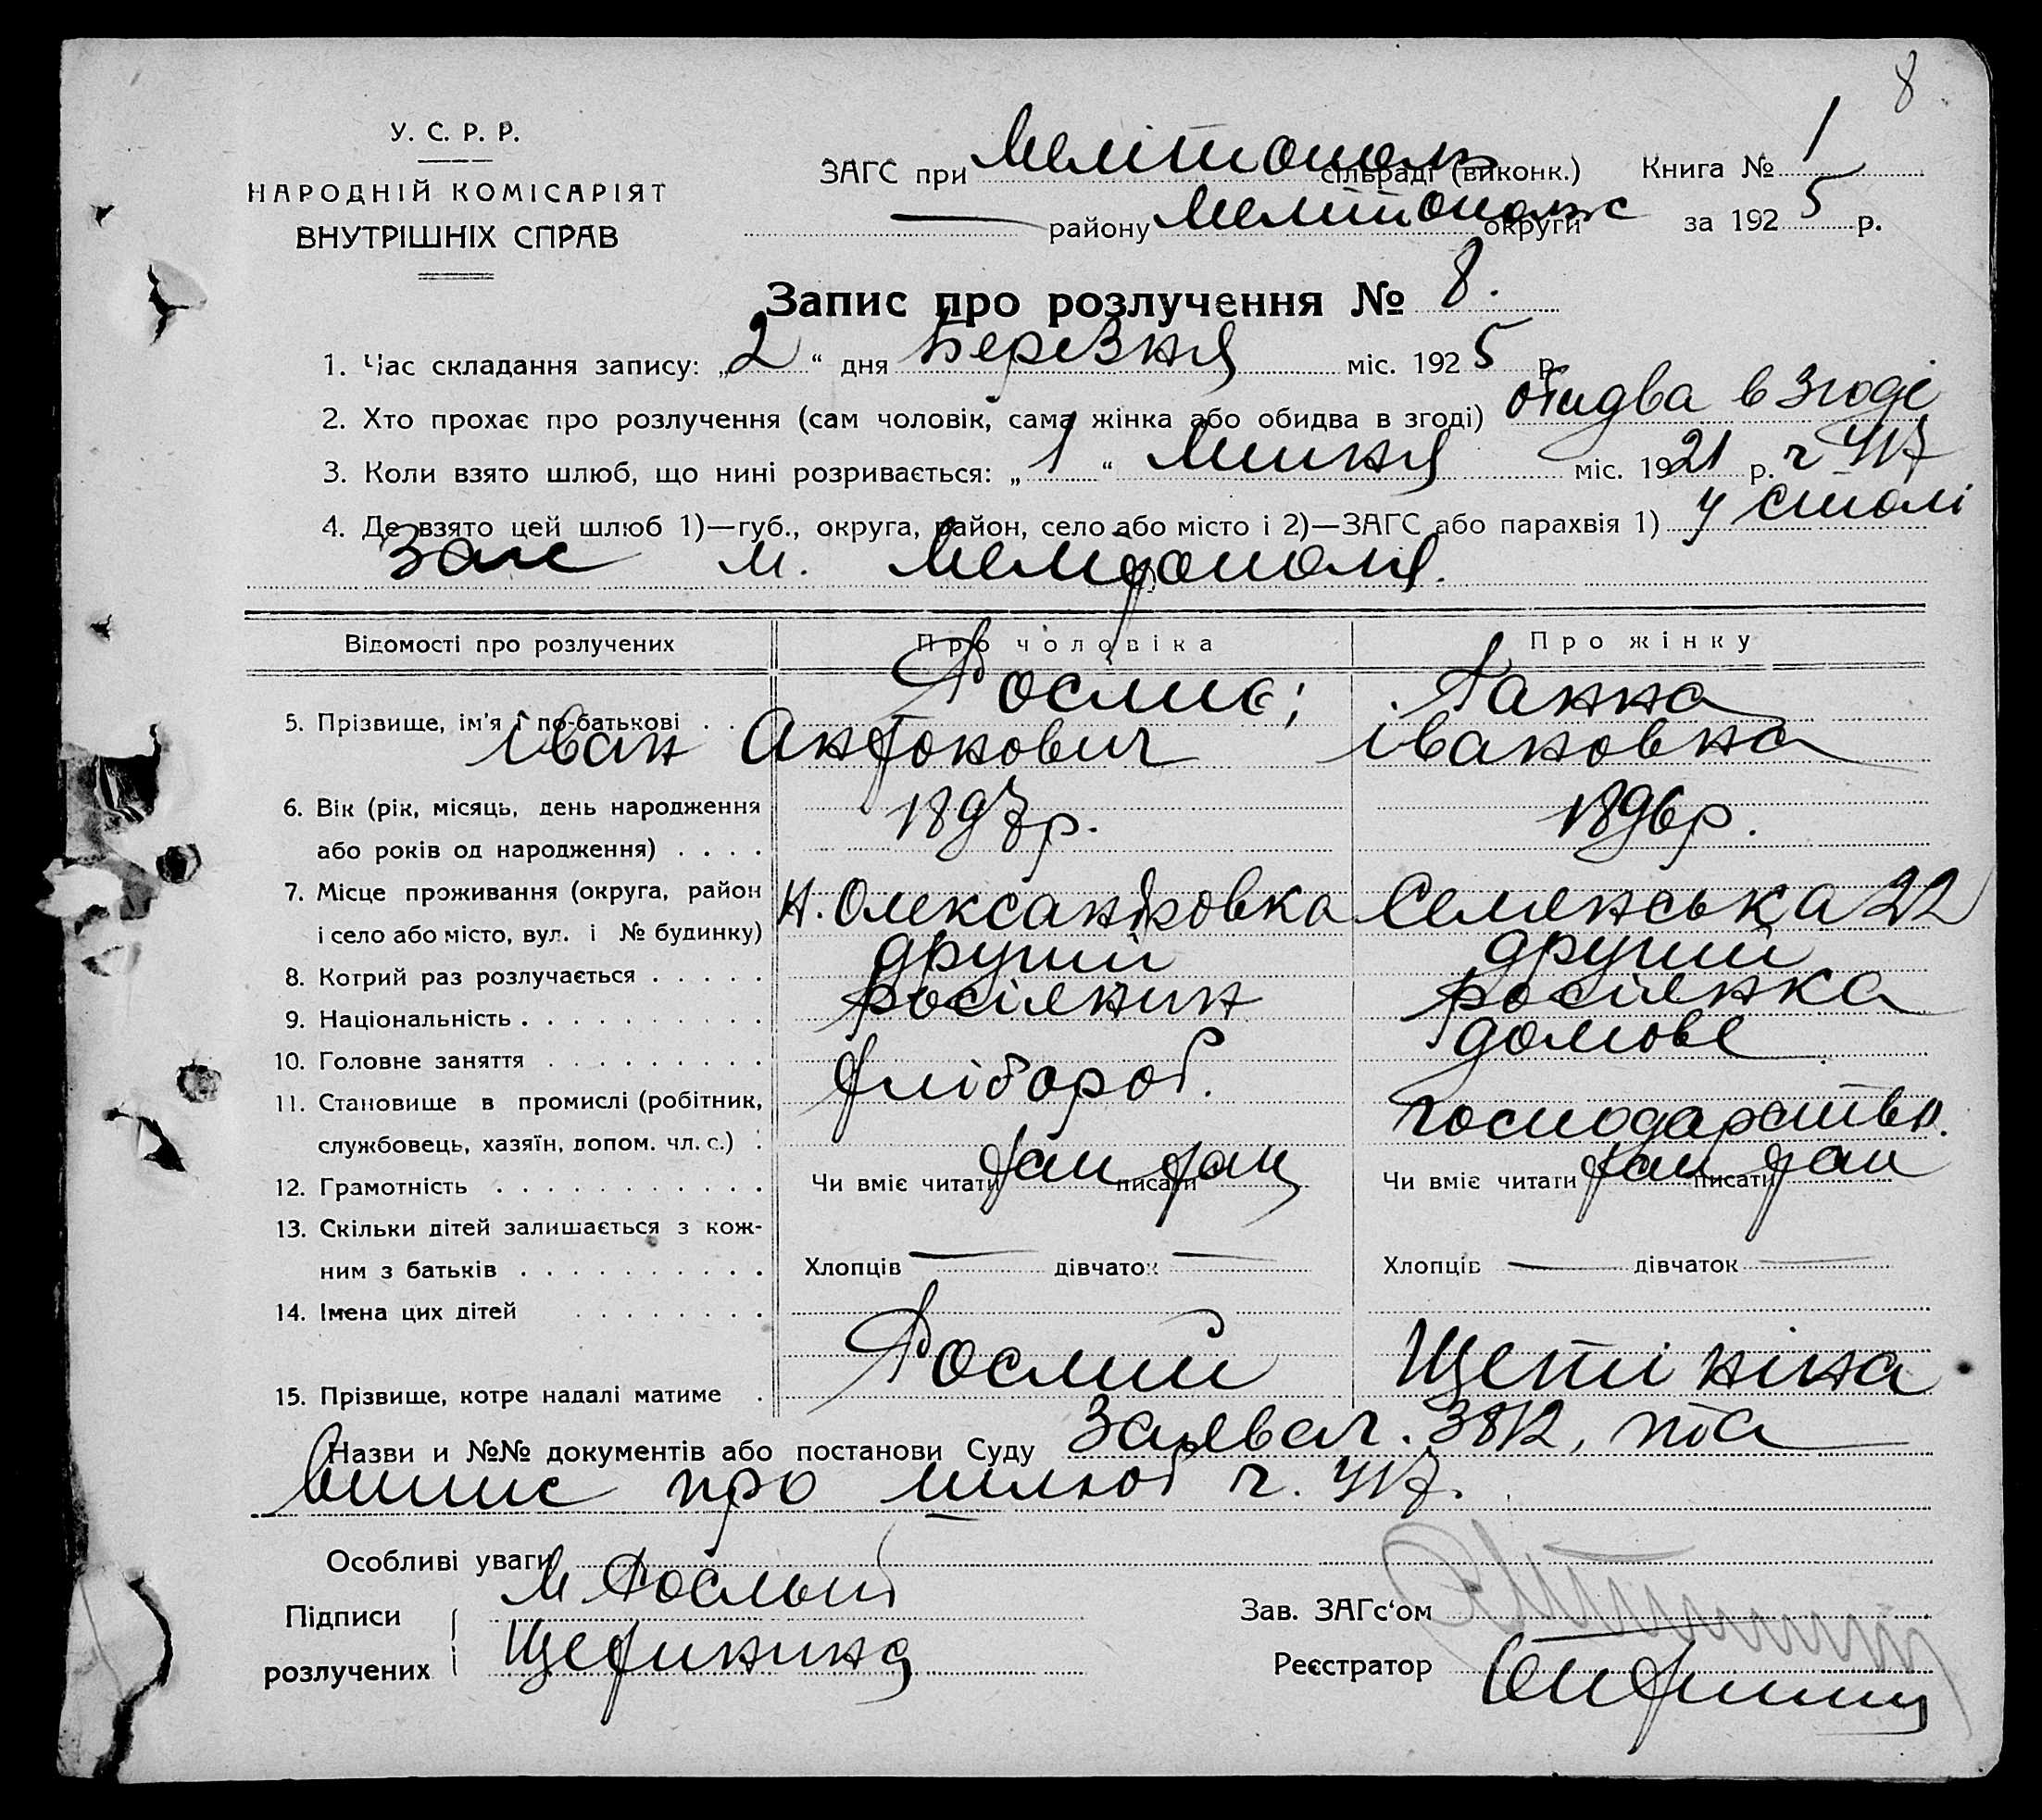 8
У. С. Р. Р.
НАРОДНІЙ КОМІСАРІЯТ
ВНУТРІШНІХ СПРАВ
ЗАГС при Мелітополь сільраді (виконк.) Книга № 1
району Мелітопольс округи за 1925 р.
Запис про розлучення № 8.
1. Час складання запису: „2“ дня Березня міс. 1925 р.
2. Хто прохає про розлучення (сам чоловік, сама жінка або обидва в згоді) обидва в згоді
3. Коли взято шлюб, що нині розривається: „1“ Липня міс. 1921 р. ч 417
4. Де взято цей шлюб 1)—губ., округа, район, село або місто і 2)—ЗАГС або парахвія 1) у столі
Загс м. Мелітополя.
Відомості про розлучених Про чоловіка Про жінку
5. Прізвище, ім'я і по-батькові . . Рослиє; Ганна
Іван Антонович Івановна
6. Вік (рік, місяць, день народження
або років од народження) . . . . 1897р. 1896р.
7. Місце проживання (округа, район
і село або місто, вул. і № будинку) Н. Олександровка Семенська 22
8. Котрий раз розлучається . . . . . другий другий
9. Національність . . . . . . . . . . росіянин росіянка
10. Головне заняття . . . . . . . . . хлібороб. домове
11. Становище в промислі (робітник,
службовець, хазяїн, допом. чл. с.) . господарство.
12. Грамотність . . . . . . . . . . . Чи вміє читати так писати так Чи вміє читати так писати так
13. Скільки дітей залишається з кож-
ним з батьків . . . . . . . . . . Хлопців — дівчаток — Хлопців — дівчаток —
14. Імена цих дітей . . . . . . . .
15. Прізвище, котре надалі матиме . Рослий Щетініна
Назви и №№ документів або постанови Суду Заява ч. 3812, та
випис про шлюб ч. 417.
Особливі уваги
Підписи Рослый
розлучених Щетинина
Зав. ЗАГс‘ом
Реєстратор